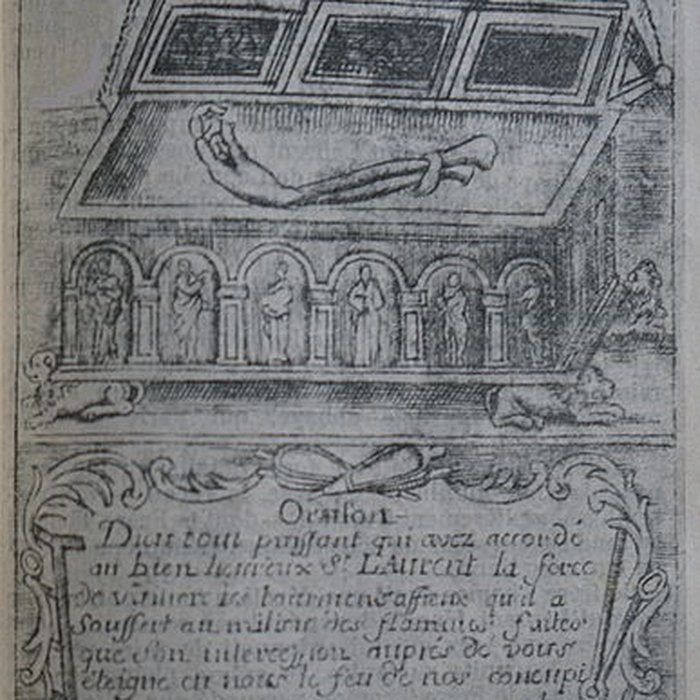 Oraison
Dieu tout puissant qui avez accordé
au bien heureux St LAurent la force
de vaincre les tourmens affreux qu'il a
souffert au milieu des flammes, faites
que son intercession auprés de vous
éteigne en nous le feu de nos concupi